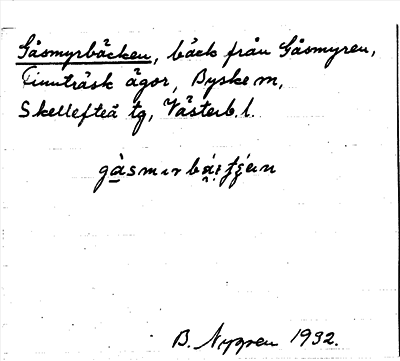 Gåsmyrbäcken, bäck från Gåsmyren,
Finnträsk ägor, Byske m,
Skellefteå tg, Västerb. l.
B. Nygren 1932.